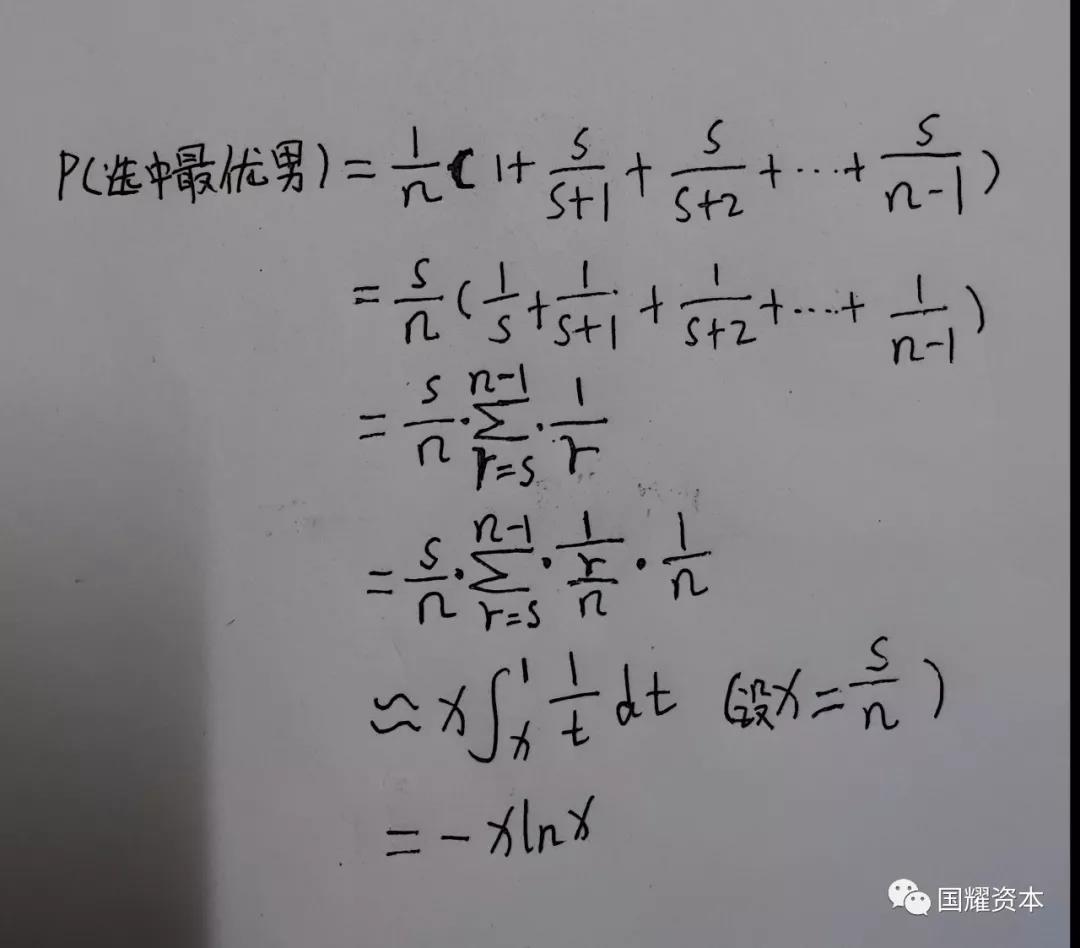 P(选中最优男) = 1/n (1 + s/(s+1) + s/(s+2) + ⋯ + s/(n-1))
= s/n (1/s + 1/(s+1) + 1/(s+2) + ⋯ + 1/(n-1))
= s/n · ∑_{r=s}^{n-1} · 1/r
= s/n · ∑_{r=s}^{n-1} · 1/(r/n) · 1/n
≈ x ∫_x^1 1/t dt (设x = s/n)
= -x ln x
国耀资本